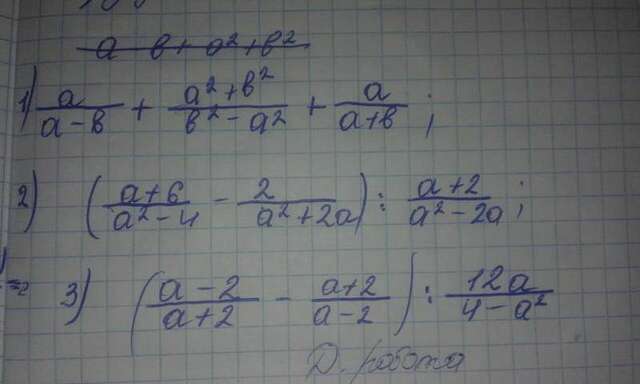 a b + a² + b²
1) a/(a-b) + (a²+b²)/(b²-a²) + a/(a+b);
2) ((a+6)/(a²-4) - 2/(a²+2a)) : (a+2)/(a²-2a);
=2
3) ((a-2)/(a+2) - (a+2)/(a-2)) : 12a/(4-a²)
Д. робота